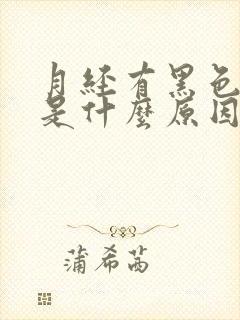 月経有黑色
是什麼原因
蒲希茜